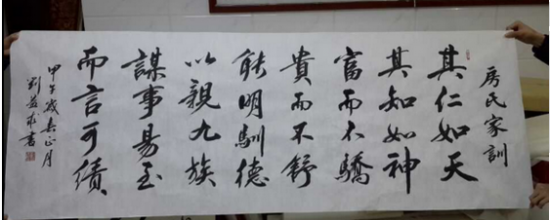 房氏家訓
其仁如天
其知如神
富而不驕
貴而不舒
能明馴德
以親九族
謀事易至
而言可績
甲午歲春正月
劉益求書